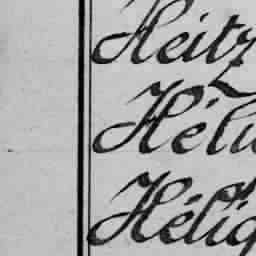 Heitz
Hélu
Hélig